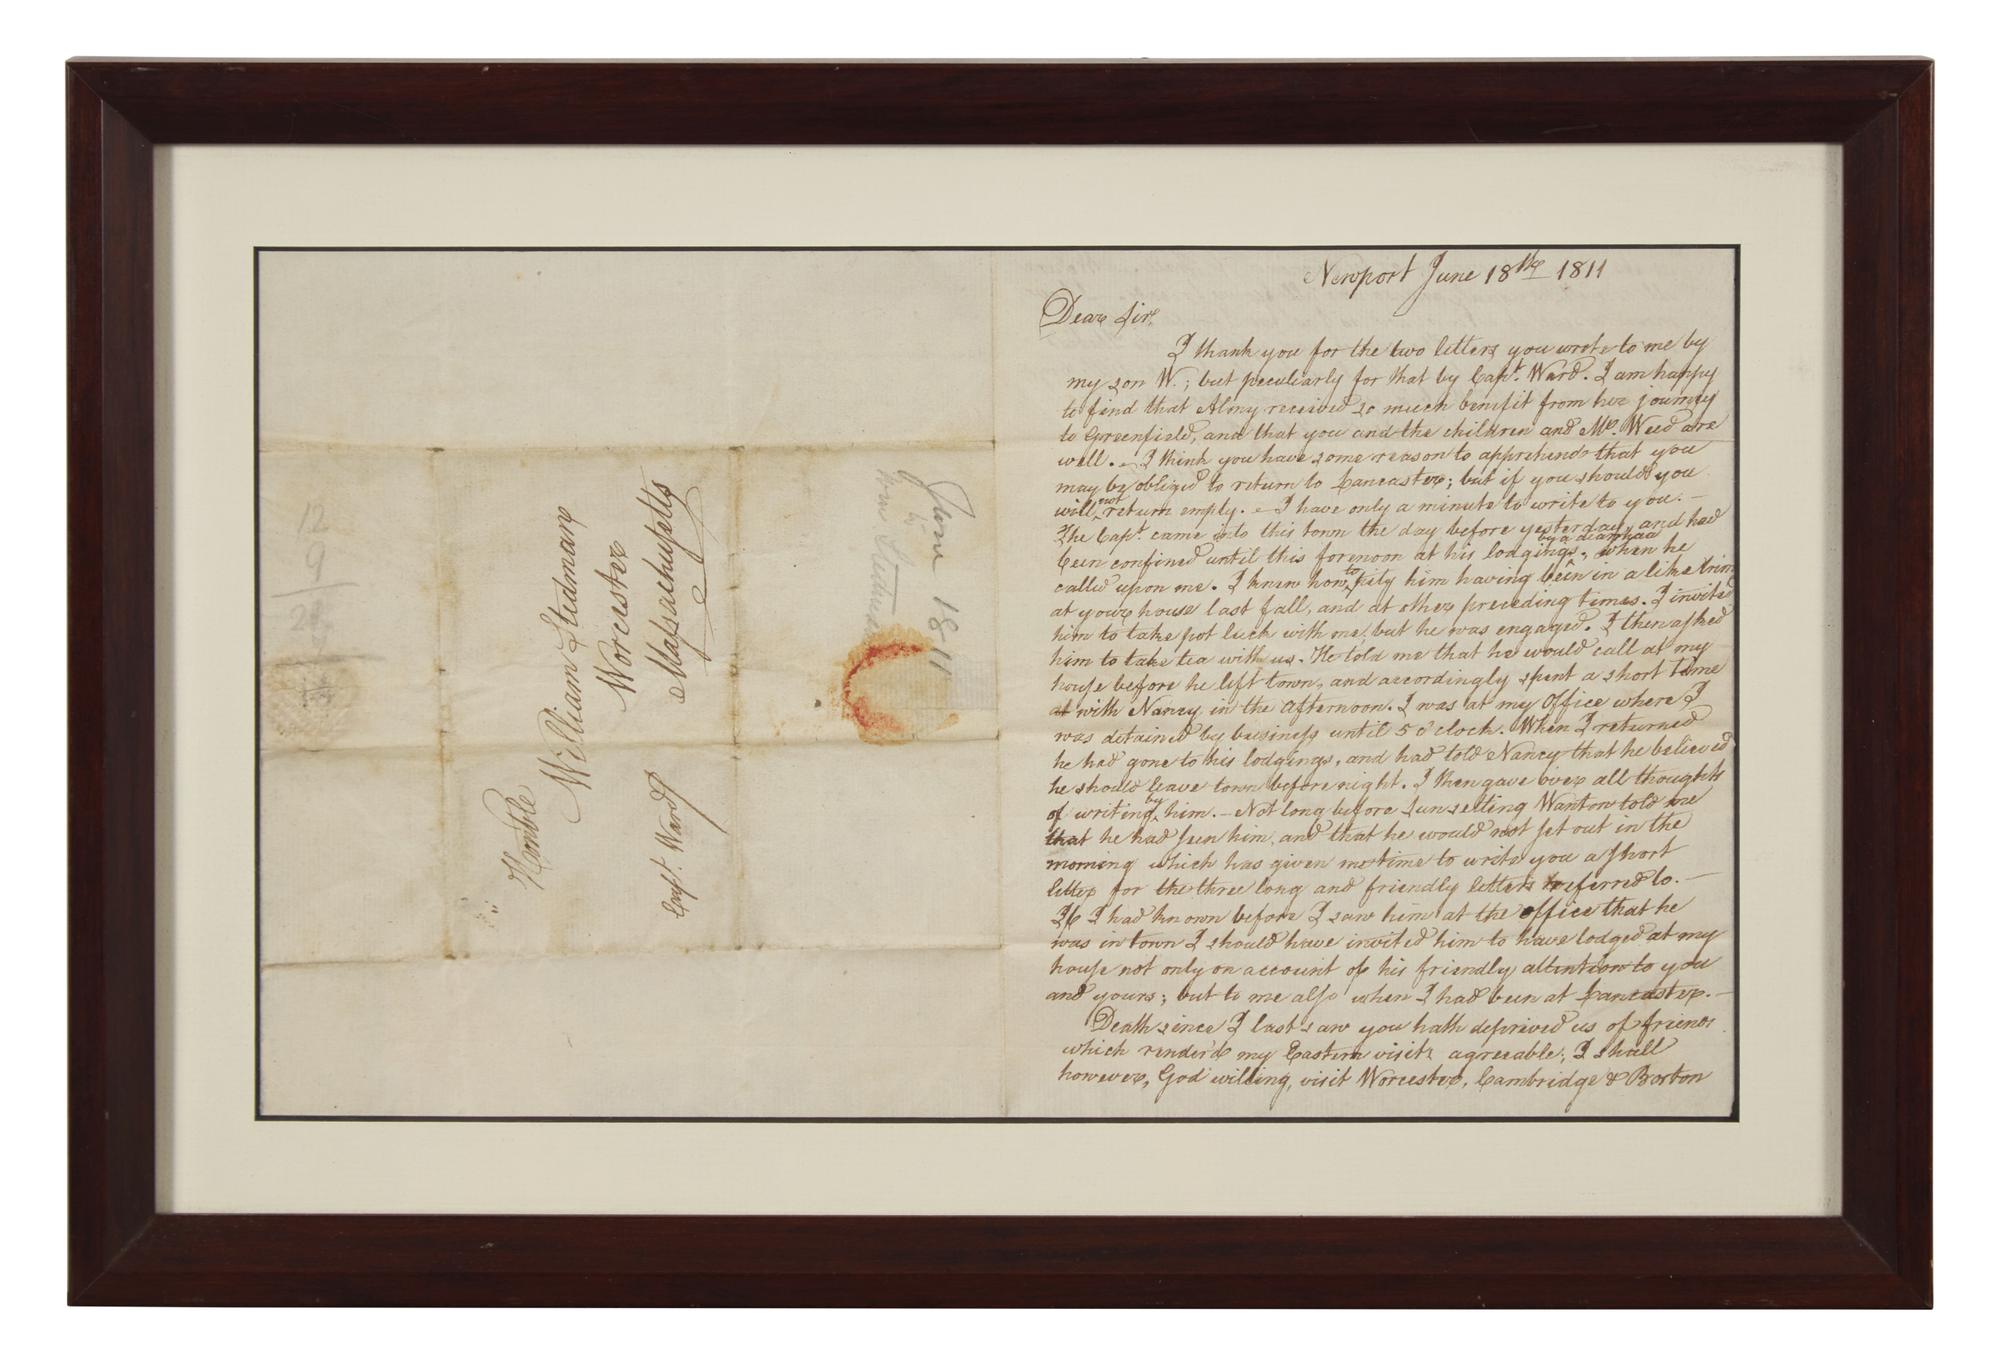 12
9
Honble
William Stedman
Worcester
Massachusetts
Capt. Ward
June 1811
Wm
Newport June 18th 1811
Dear Sir,
I thank you for the two letters you wrote to me by
my son W.; but peculiarly for that by Capt. Ward. I am happy
to find that Almy received so much benefit from her journey
to Greenfield, and that you and the children and Mr. Weed are
well. — I think you have some reason to apprehend that you
may be obliged to return to Lancaster; but if you should you
will not return empty. — I have only a minute to write to you. —
The Capt. came into this town the day before yesterday, and had
been confined until this forenoon at his lodgings, by a diarrhaa when he
called upon me. I knew how to pity him having been in a like trim
at your house last fall, and at other preceding times. I invited
him to take pot luck with me, but he was engaged. I then asked
him to take tea with us. He told me that he would call at my
house before he left town, and accordingly spent a short time
at with Nancy in the afternoon. I was at my Office where I
was detained by business until 5 o'clock. When I returned
he had gone to his lodgings, and had told Nancy that he believed
he should leave town before night. I then gave over all thoughts
of writing by him. — Not long before sun setting Wanton told me
that he had seen him, and that he would not set out in the
morning which has given me time to write you a short
letter for the three long and friendly letters referred to. —
If I had known before I saw him at the office that he
was in town I should have invited him to have lodged at my
house not only on account of his friendly attention to you
and yours; but to me also when I had been at Lancaster. —
Death since I last saw you hath deprived us of friends
which render'd my Eastern visits agreeable; I shall
however, God willing, visit Worcester, Cambridge & Boston